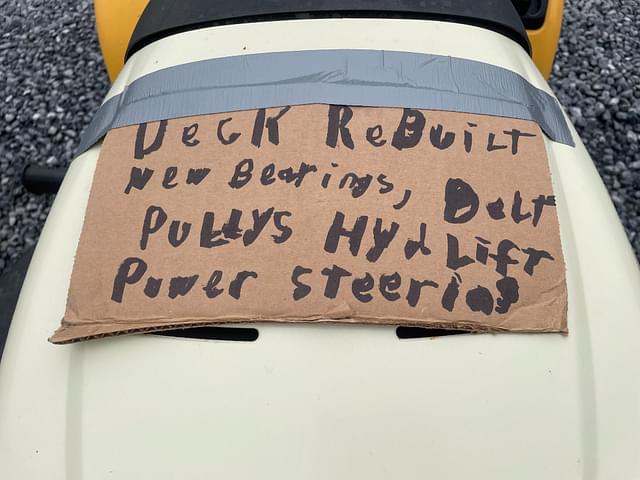 DeCK ReBuilt
New Bearings, Belt
PullYs HYd Lift
Power steering